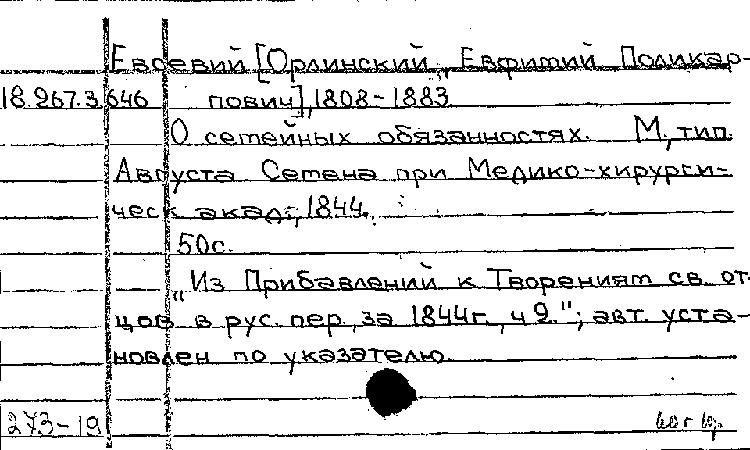 Евсевий [Орлинский, Евфимий Поликар-
18.267.3.646 пович], 1808-1883
О семейных обязанностях. М, тип.
Августа Семена при Медико-хирурги-
ческ акад-, 1844.
50с.
„Из Прибавлений к Творениям св. от-
цов в рус. пер, за 1844г, ч 2."; авт. уста-
новлен по указателю.
273-19